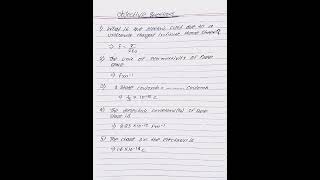 Objective Question
1) What is the electric field due to a
uniformly charged infinite sheet
⇒ E =
2) The unit of permittivity of free
space
⇒ Fm⁻¹
3) 1 state coulomb = ———— Coulomb
⇒ × 10⁻⁹ C
4) The of free
space is
⇒ 8.85 × 10⁻¹² Fm⁻¹
5) The charge on the electron is
⇒ 1.6 × 10⁻¹⁹ C